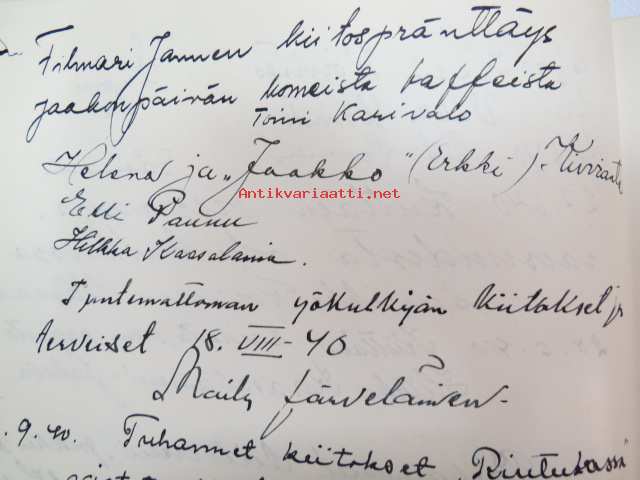 Filmari Jannen kiitospränttäys
jaakonpäivän komeista kaffeista
Toini Karivalo
Helena ja "Jaakko" (Erkki) Kivranta
Antikvariaatti.net
Elli Paunu
Hilkka Kaasalainen.
Tuntemattoman yökulkijan kiitokset ja
terveiset 18. VIII-40
Maily Järveläinen-
.9.40. Tuhannet kiitokset